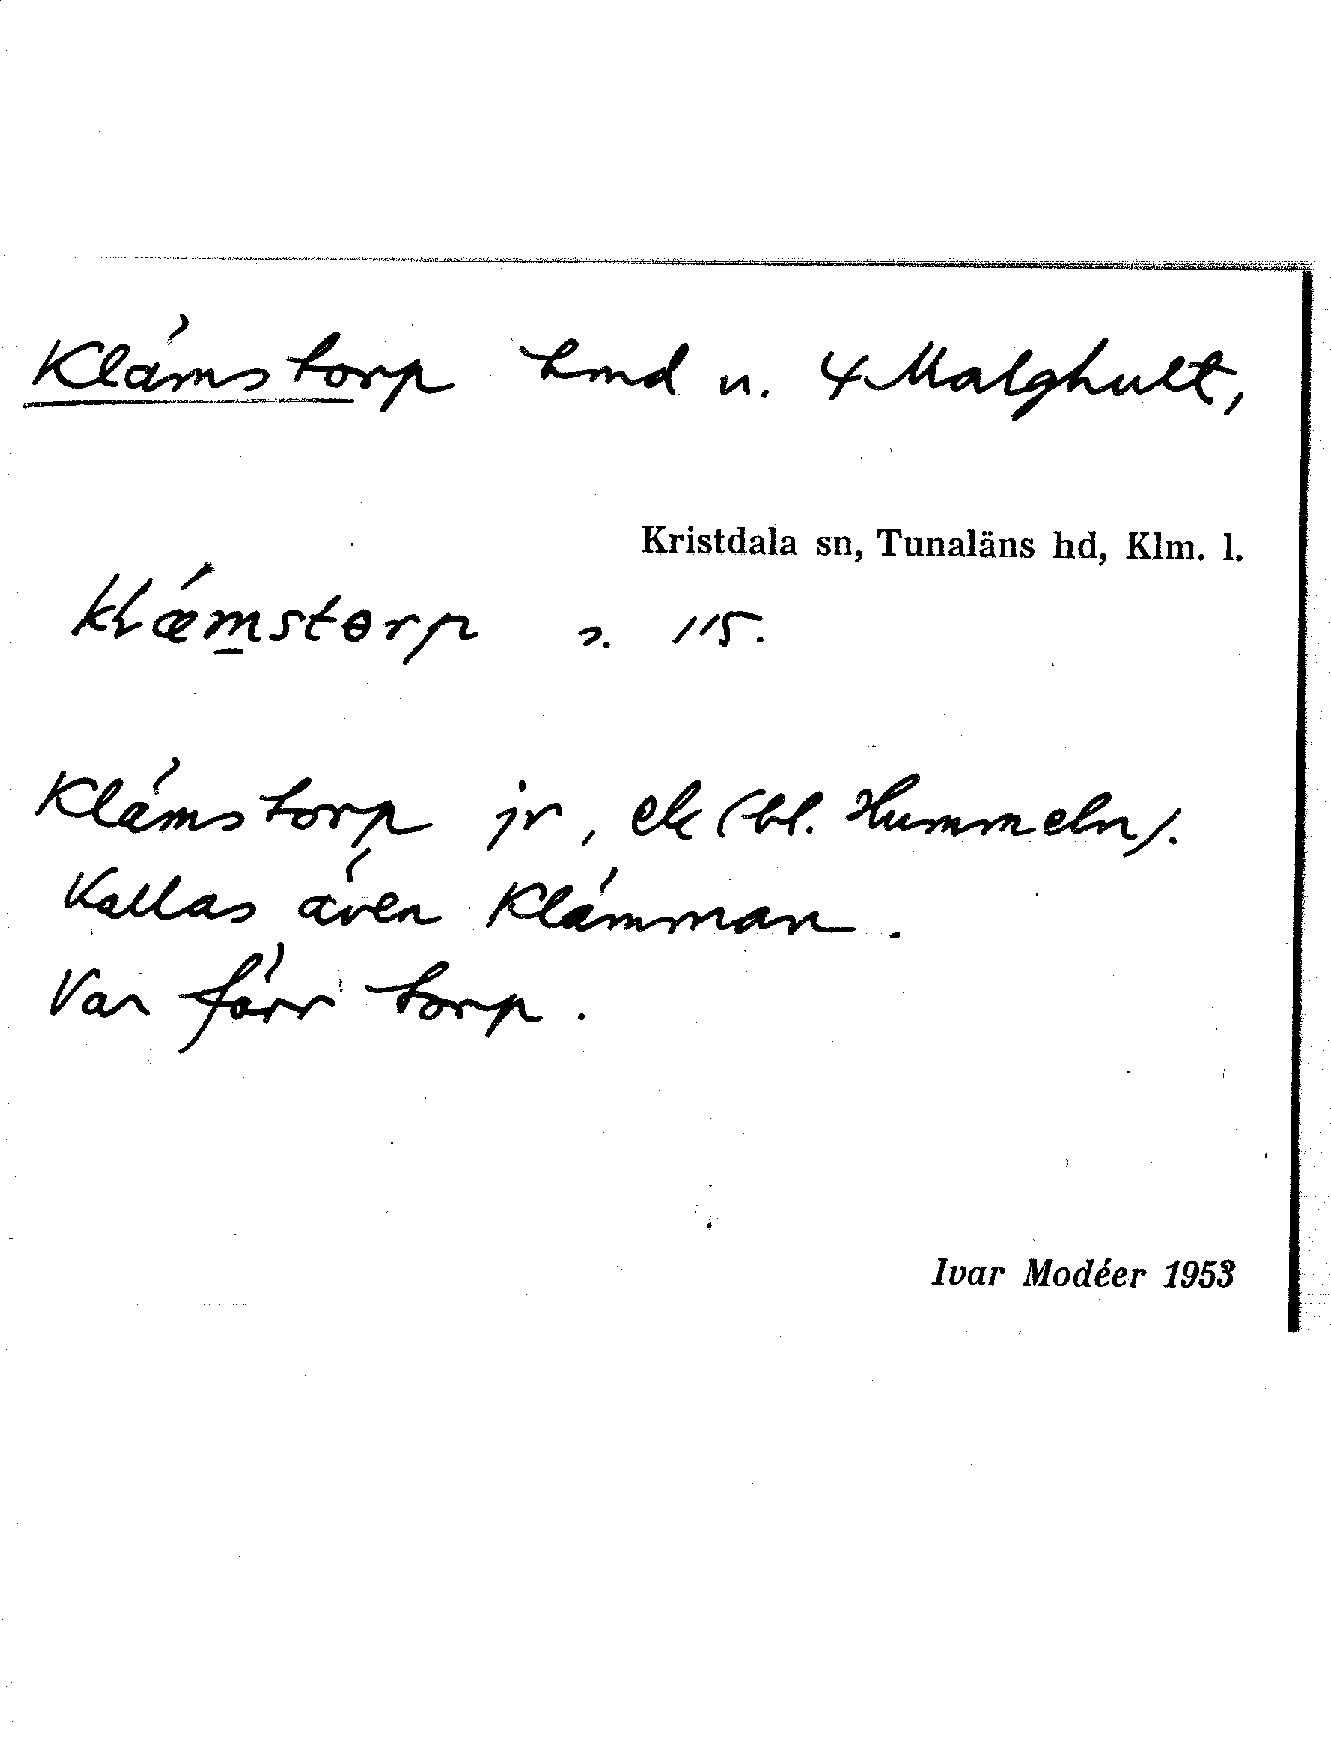 Klämstorp hmd u. 4 Malghult,
Kristdala sn, Tunaläns hd, Klm. l.
klǽmstɵrp s. 115.
Klämstorp jr, ek (bl. Hummeln).
Kallas även Klämman.
Var förr torp.
Ivar Modéer 1953